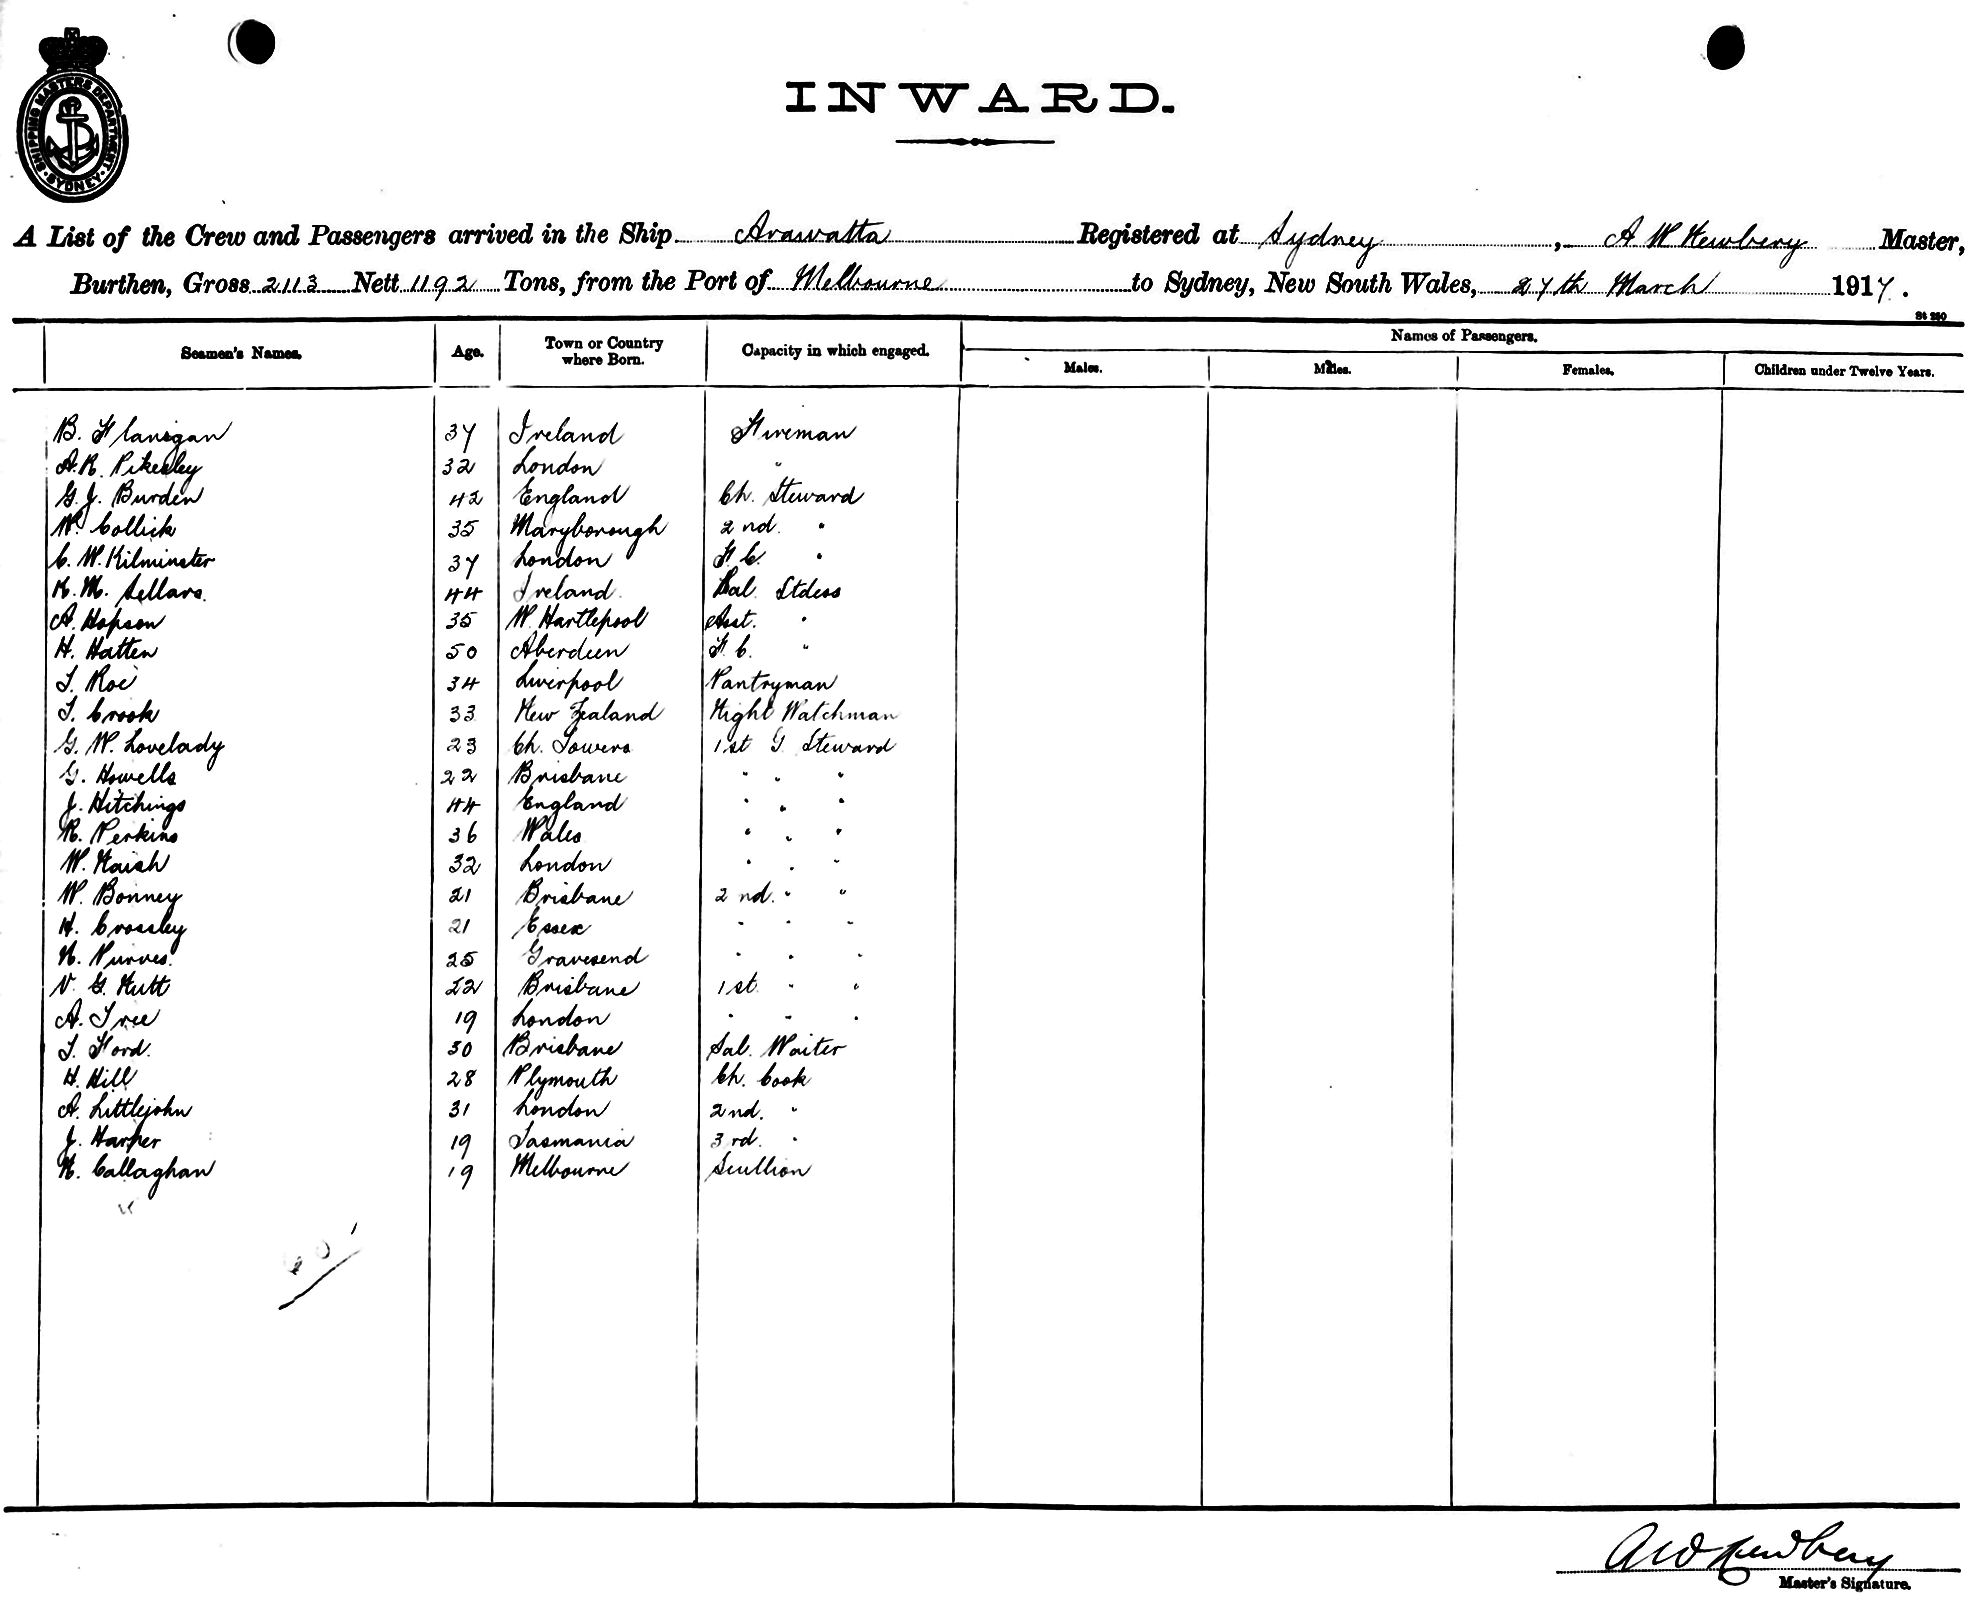 SHIPPING MASTERS DEPARTMENT · SYDNEY ·
INWARD.
A List of the Crew and Passengers arrived in the Ship Arawatta Registered at Sydney, A W Newbery Master,
Burthen, Gross 2113 Nett 1192 Tons, from the Port of Melbourne to Sydney, New South Wales, 27th March 1917.
St 280
Seamen's Names. Age. Town or Country where Born. Capacity in which engaged. Names of Passengers.
Males. Males. Females. Children under Twelve Years.
B. Flanigan 37 Ireland Fireman
A.R. Pikesley 32 London "
G. J. Burden 42 England Ch. Steward
W. Collick 35 Maryborough 2nd. "
C. W. Kilminster 37 London F.C. "
K. M. Sellars. 44 Ireland. Sal. Stdess
A. Hopson 35 W. Hartlepool Asst. "
H. Hatten 50 Aberdeen F.C. "
T. Roe 34 Liverpool Pantryman
T. Crook 33 New Zealand Night Watchman
G. W. Lovelady 23 Ch. Towers 1st G Steward
G. Howells 22 Brisbane " " "
J. Hitchings 44 England " " "
R. Perkins 36 Wales " " "
W. Naish 32 London " " "
W. Bonney 21 Brisbane 2nd. " "
H. Crossley 21 Essex " " "
N. Purves. 25 Gravesend " " "
V. G. Nutt 22 Brisbane 1st. " "
A. Tree 19 London " " "
T. Ford. 30 Brisbane Sal. Waiter
H. Hill 28 Plymouth Ch. Cook
A. Littlejohn 31 London 2nd. "
J. Harper 19 Tasmania 3rd. "
N. Callaghan 19 Melbourne Scullion
A W Newbery
Master's Signature.